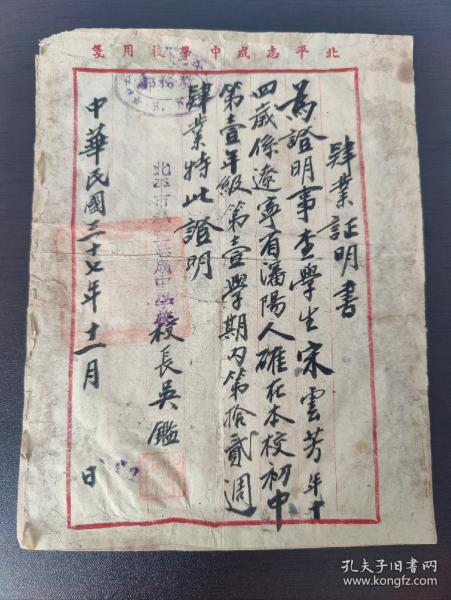 北平志成中學校用箋
肄業証明書
為證明事查學生宋雲芳年十
四歲係遼寧省瀋陽人確在本校初中
第壹年級第壹學期內第拾貳週
肄業特此證明
北平市私立志成中學校
校長吳鑑
中華民國三十七年十一月 日
孔夫子旧书网
www.kongfz.com